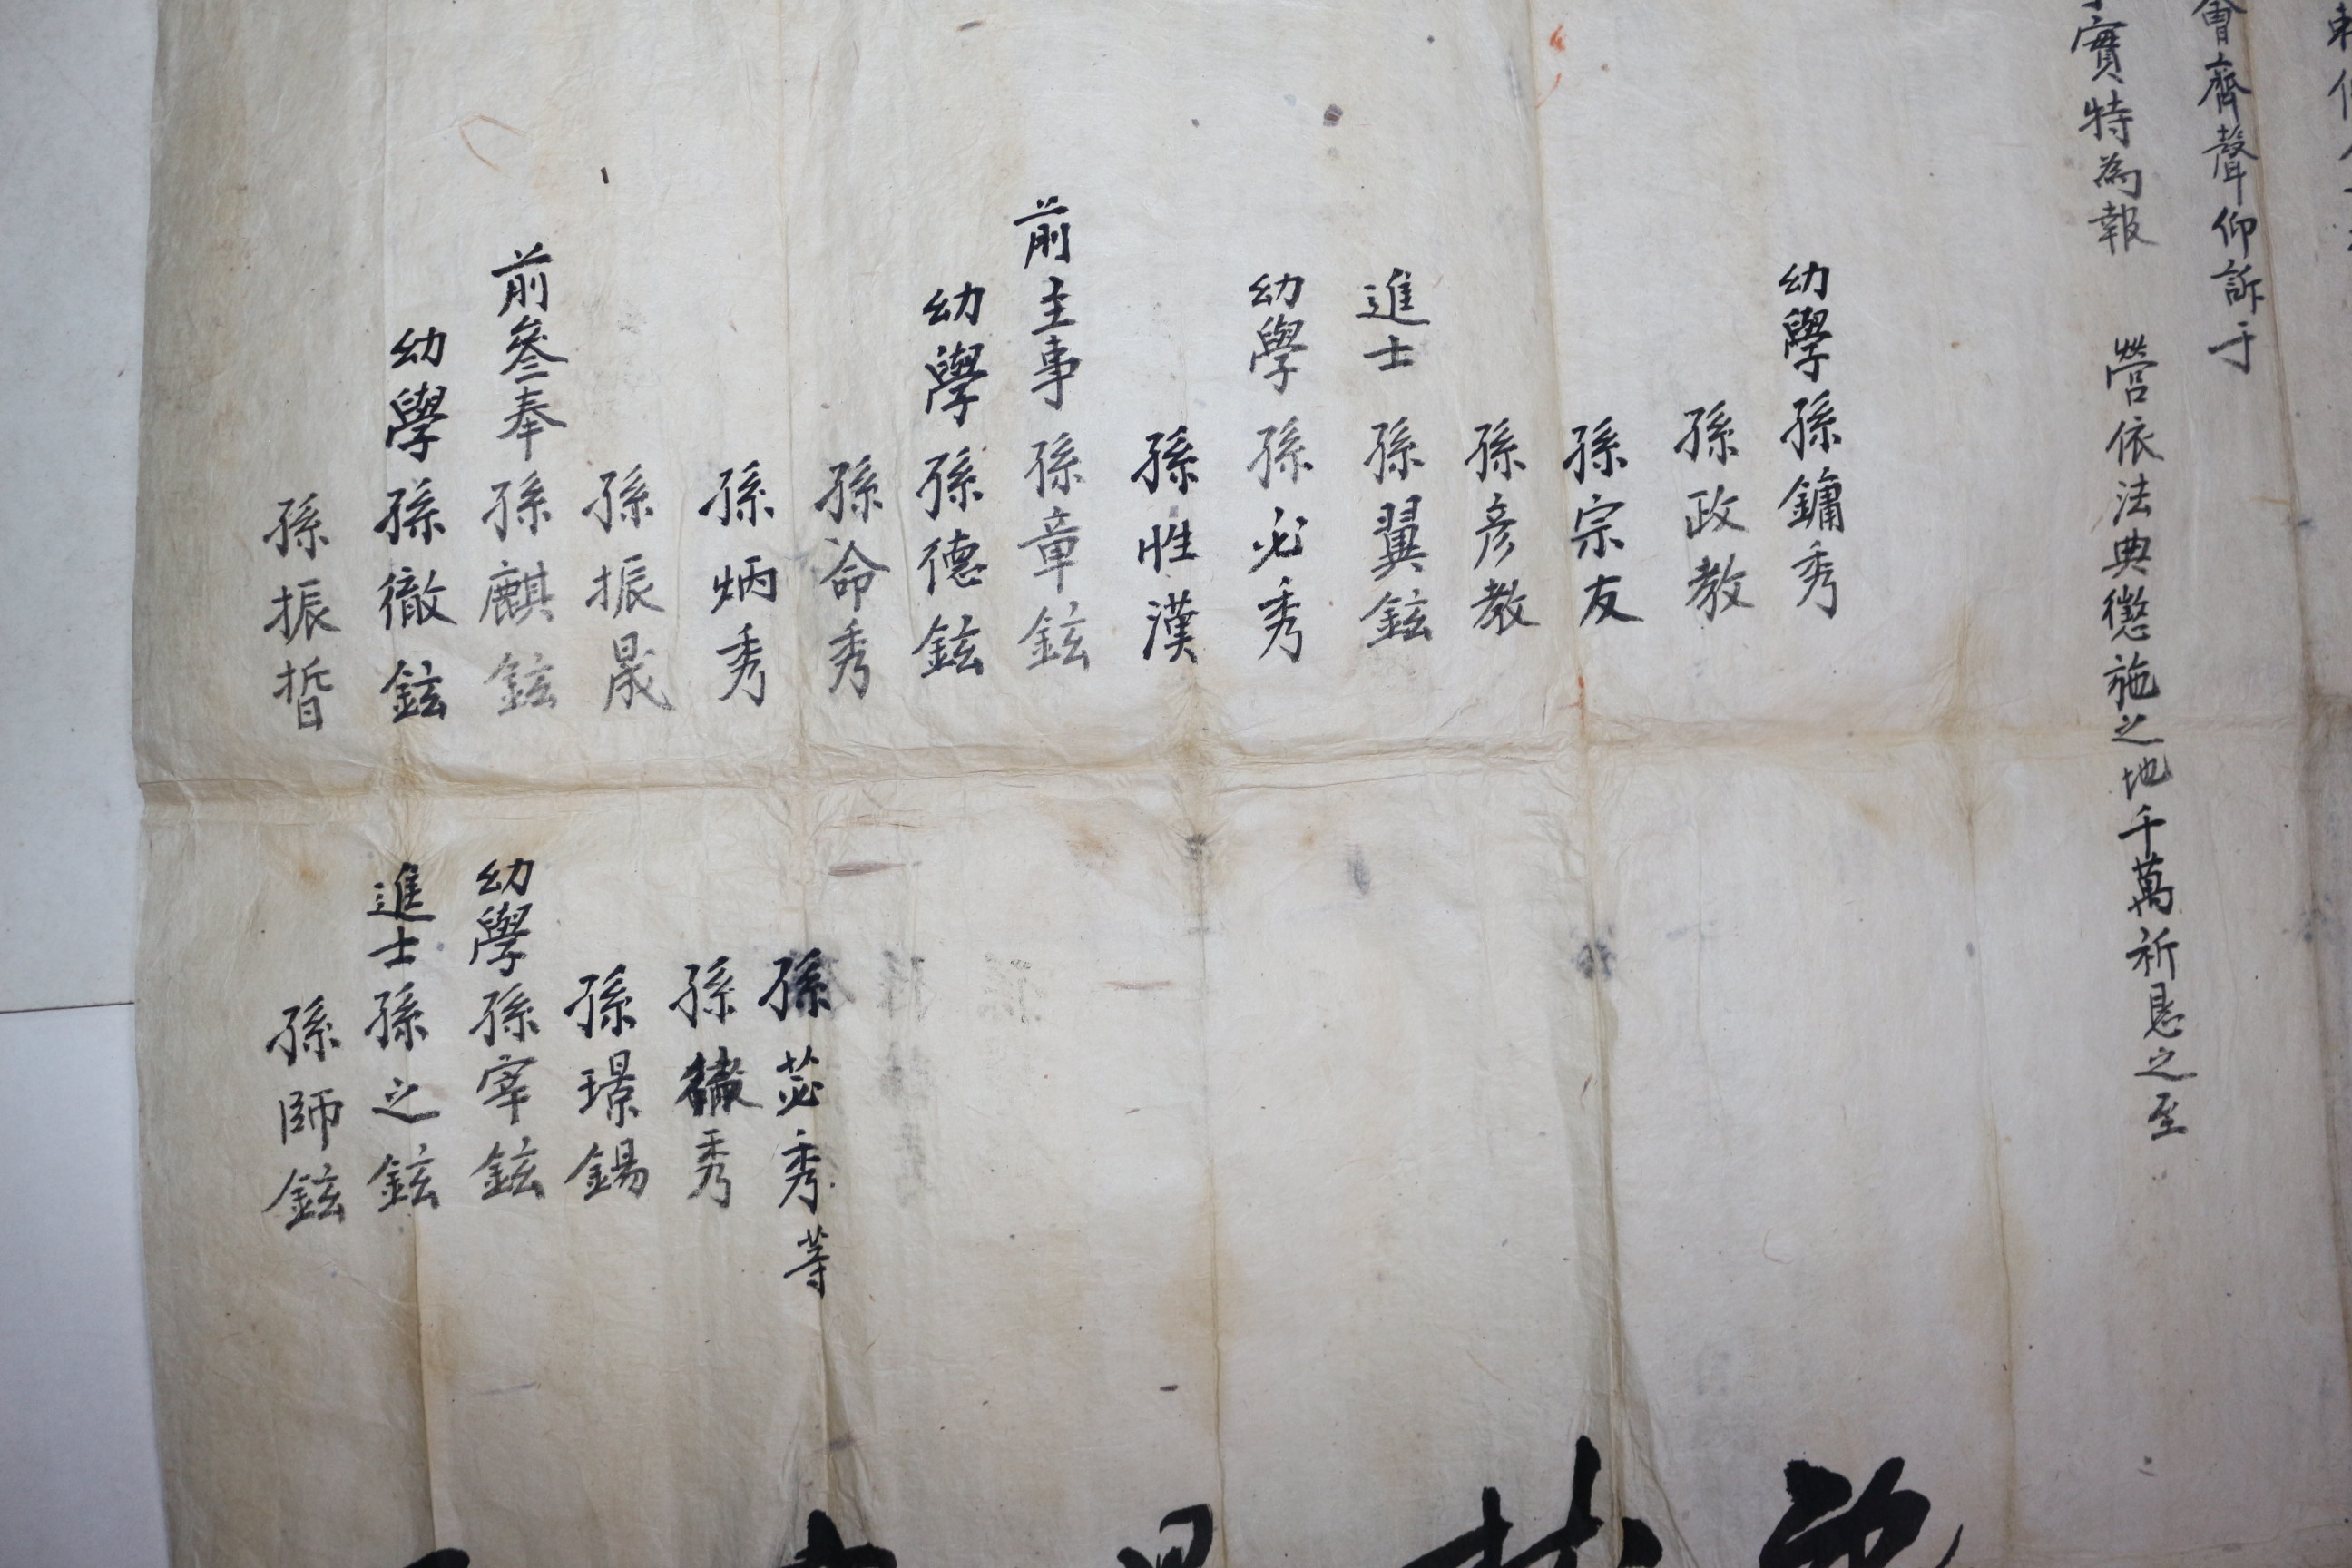 會齊聲仰訴于
實特為報 營依法典懲施之地千萬祈恳之至
幼學孫鏞秀
孫政教
孫宗友
孫彦教
進士 孫翼鉉
幼學孫必秀
孫性漢
前主事孫章鉉
幼學孫德鉉
孫命秀
孫炳秀
孫振晟
前叅奉孫麒鉉
幼學孫徹鉉
孫振晢
孫苾秀等
孫秀
孫璟錫
幼學孫宰鉉
進士孫之鉉
孫師鉉